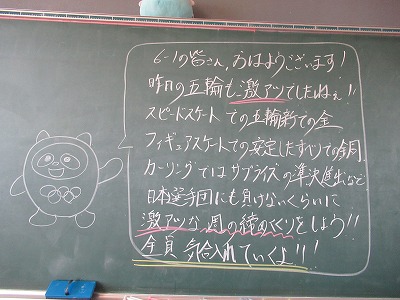 6-1の皆さん、おはようございます!
昨日の五輪も激アツでしたねぇ!!
スピードスケートでの五輪新での金、
フィギュアスケートでの安定したすべりでの金・銅、
カーリングではサプライズの準決進出など、
日本選手団にも負けないくらいに
激アツな週の締めくくりをしよう!!
全員気合入れていくよ!!!